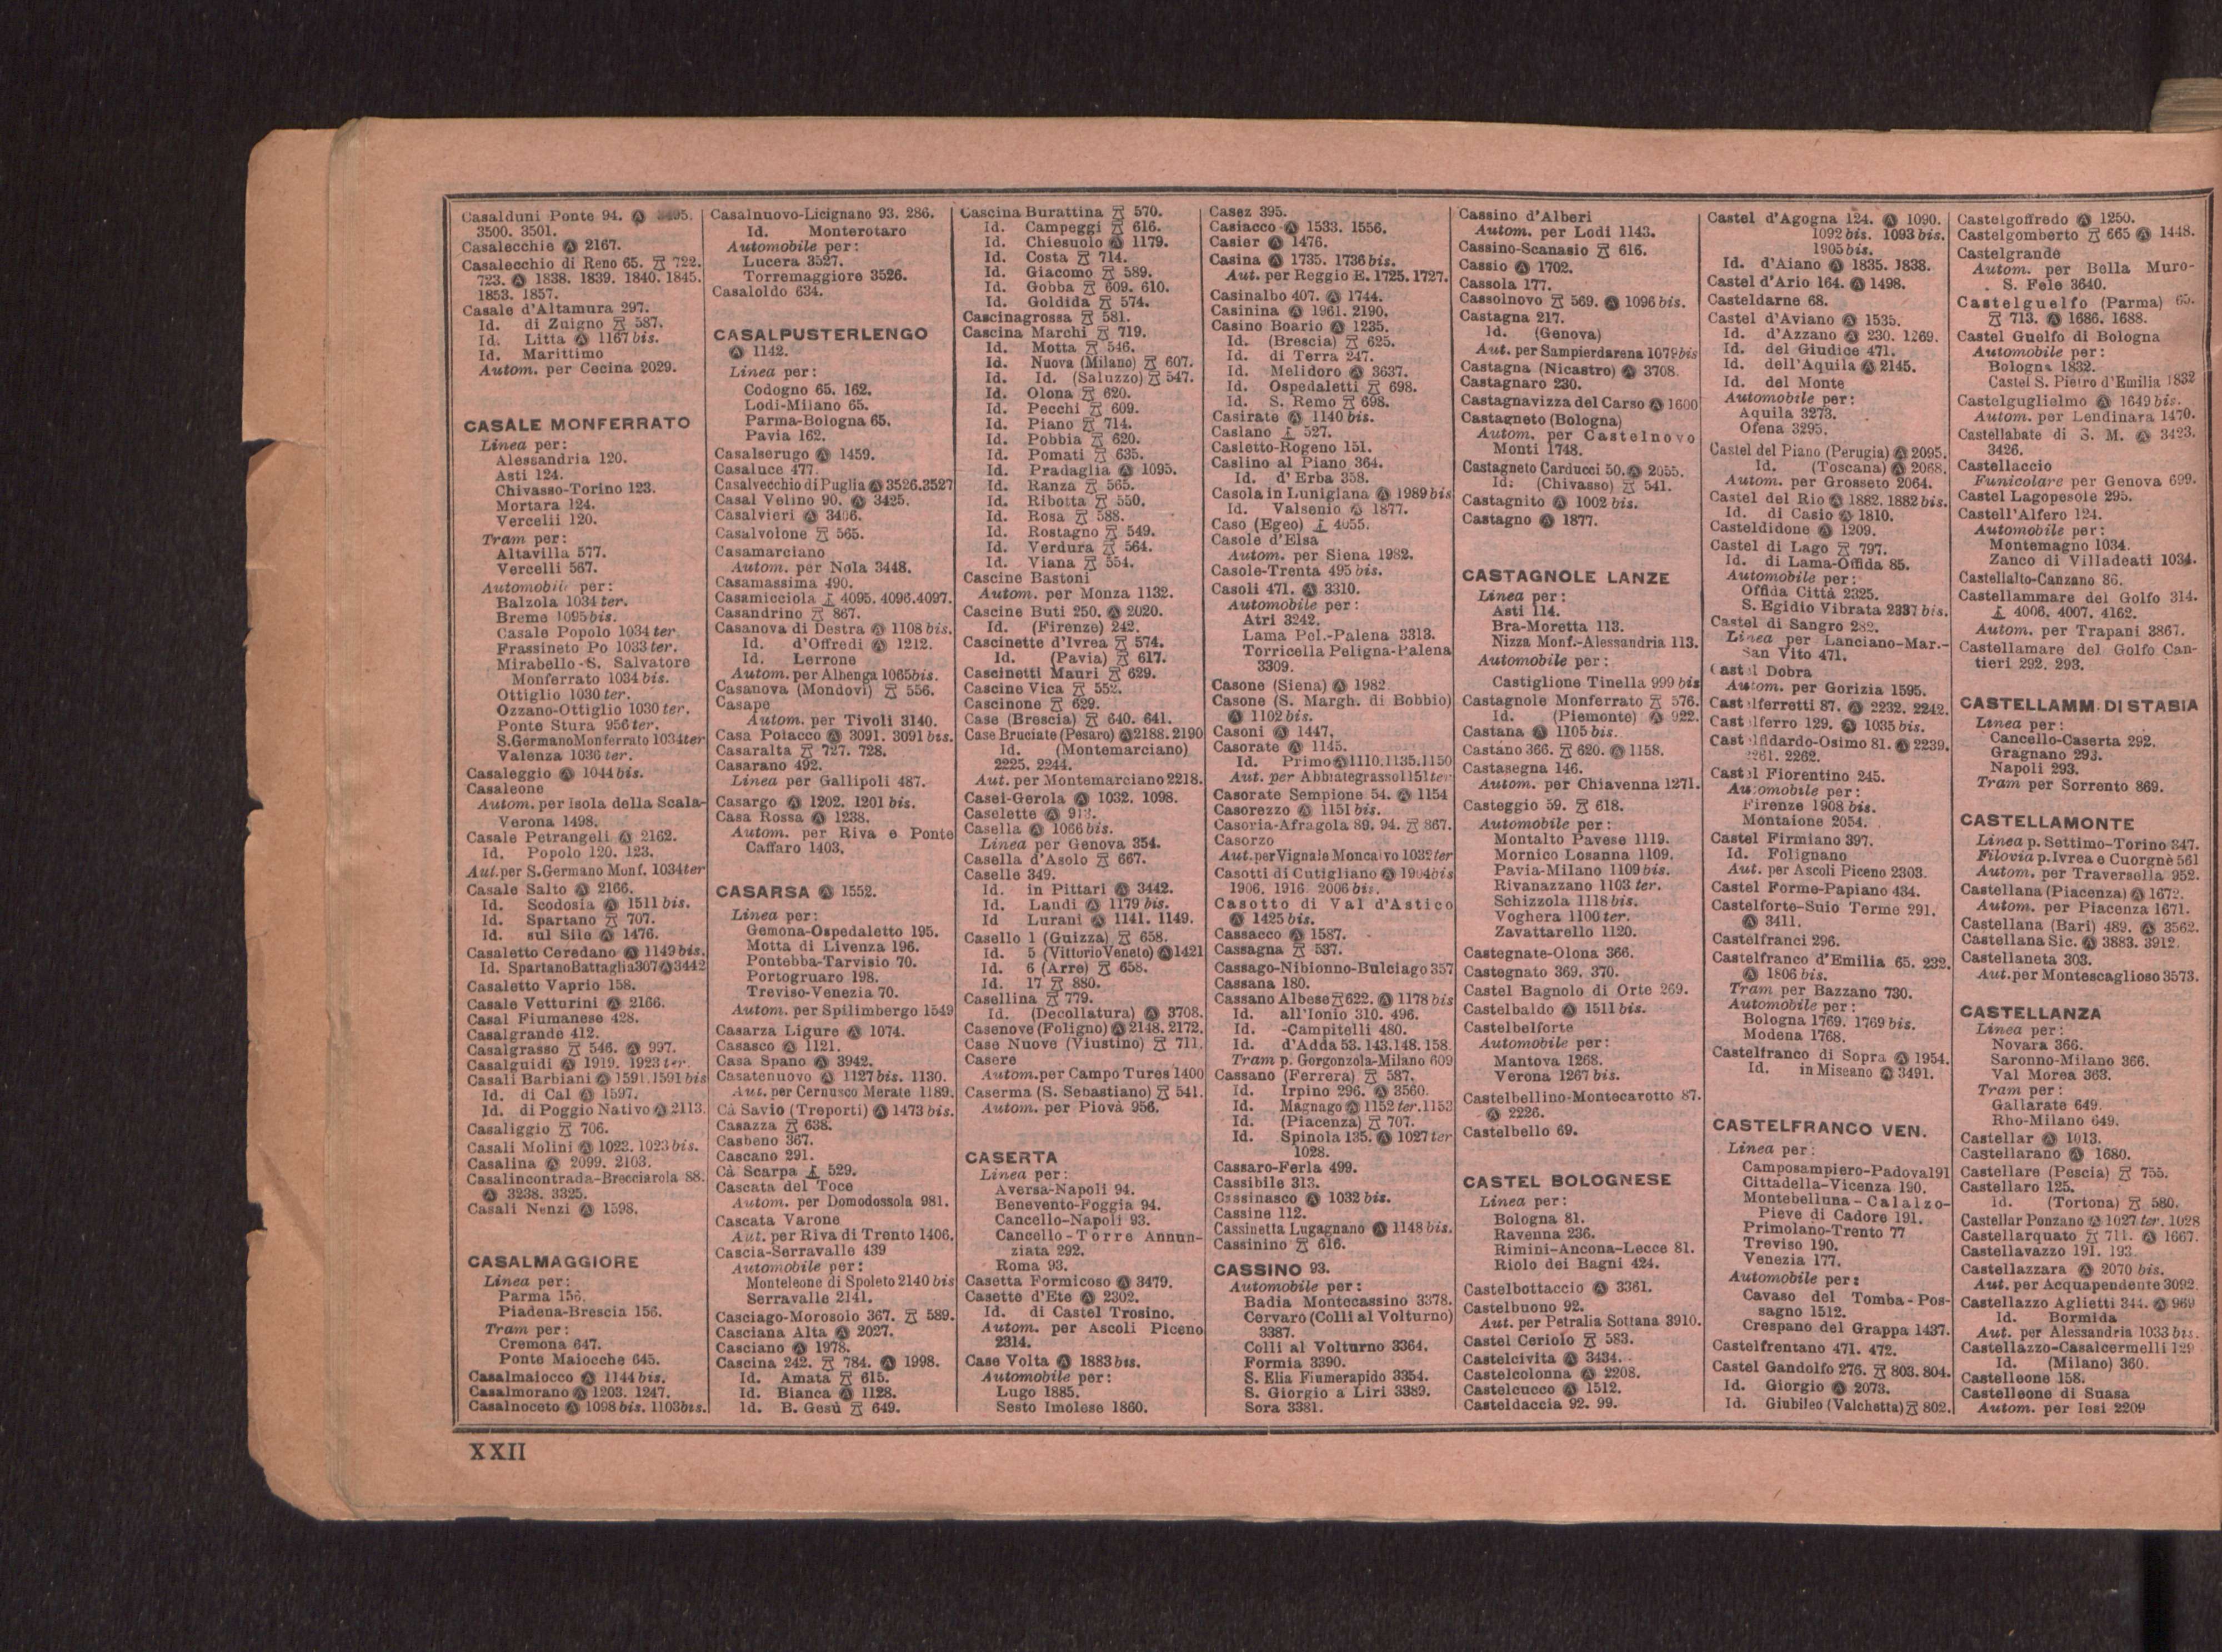 Casalduni Ponte 94. Ⓐ
3500. 3501.
Casalecchie Ⓐ 2167.
Casalecchio di Reno 65. 722.
723. Ⓐ 1838. 1839. 1840. 1845.
1853. 1857.
Casale d'Altamura 297.
Id. di Zuigno 587.
Id. Litta Ⓐ 1167 bis.
Id. Marittimo
Autom. per Cecina 2029.
CASALE MONFERRATO
Linea per:
Alessandria 120.
Asti 124.
Chivasso-Torino 123.
Mortara 124.
Vercelli 120.
Tram per:
Altavilla 577.
Vercelli 567.
Automobile per:
Balzola 1034 ter.
Breme 1095 bis.
Casale Popolo 1034 ter
Frassineto Po 1033 ter.
Mirabello-S. Salvatore
Monferrato 1034 bis.
Ottiglio 1030 ter.
Ozzano-Ottiglio 1030 ter.
Ponte Stura 956 ter.
S.GermanoMonferrato 1034ter
Valenza 1036 ter.
Casaleggio Ⓐ 1044 bis.
Casaleone
Autom. per Isola della Scala-
Verona 1498.
Casale Petrangeli Ⓐ 2162.
Id. Popolo 120. 123.
Aut.per S.Germano Monf. 1034ter
Casale Salto Ⓐ 2166.
Id. Scodosia Ⓐ 1511 bis.
Id. Spartano 707.
Id. sul Sile Ⓐ 1476.
Casaletto Ceredano Ⓐ 1149 bis.
Id. SpartanoBattaglia367Ⓐ3442
Casaletto Vaprio 158.
Casale Vetturini Ⓐ 2166.
Casal Fiumanese 428.
Casalgrande 412.
Casalgrasso 546. Ⓐ 997.
Casalguidi Ⓐ 1919. 1923 ter.
Casali Barbiani Ⓐ 1591.1591 bis
Id. di Cal Ⓐ 1597.
Id. di Poggio Nativo Ⓐ 2113.
Casaliggio 706.
Casali Molini Ⓐ 1022. 1023 bis.
Casalina Ⓐ 2099. 2103.
Casalincontrada-Brecciarola 88.
Ⓐ 3238. 3325.
Casali Nenzi Ⓐ 1598.
CASALMAGGIORE
Linea per:
Parma 156.
Piadena-Brescia 156.
Tram per:
Cremona 647.
Ponte Maiocche 645.
Casalmaiocco Ⓐ 1144 bis.
Casalmorano Ⓐ 1203. 1247.
Casalnoceto Ⓐ 1098 bis. 1103bis.
Casalnuovo-Licignano 93. 286.
Id. Monterotaro
Automobile per:
Lucera 3527.
Torremaggiore 3526.
Casaloldo 634.
CASALPUSTERLENGO
Ⓐ 1142.
Linea per:
Codogno 65. 162.
Lodi-Milano 65.
Parma-Bologna 65.
Pavia 162.
Casalserugo Ⓐ 1459.
Casaluce 477.
Casalvecchio di Puglia Ⓐ 3526.3527
Casal Velino 90. Ⓐ 3425.
Casalvieri Ⓐ 3406.
Casalvolone 565.
Casamarciano
Autom. per Nola 3448.
Casamassima 490.
Casamicciola 4095. 4096.4097.
Casandrino 867.
Casanova di Destra Ⓐ 1108 bis.
Id. d'Offredi Ⓐ 1212.
Id. Lerrone
Autom. per Albenga 1065bis.
Casanova (Mondovì) 556.
Casape
Autom. per Tivoli 3140.
Casa Potacco Ⓐ 3091. 3091 bis.
Casaralta 727. 728.
Casarano 492.
Linea per Gallipoli 487.
Casargo Ⓐ 1202. 1201 bis.
Casa Rossa Ⓐ 1238.
Autom. per Riva e Ponte
Caffaro 1403.
CASARSA Ⓐ 1552.
Linea per:
Gemona-Ospedaletto 195.
Motta di Livenza 196.
Pontebba-Tarvisio 70.
Portogruaro 198.
Treviso-Venezia 70.
Autom. per Spilimbergo 1549
Casarza Ligure Ⓐ 1074.
Casasco Ⓐ 1121.
Casa Spano Ⓐ 3942.
Casatenuovo Ⓐ 1127 bis. 1130.
Aut. per Cernusco Merate 1189.
Cà Savio (Treporti) Ⓐ 1473 bis.
Casazza 638.
Casbeno 367.
Cascano 291.
Cà Scarpa 529.
Cascata del Toce
Autom. per Domodossola 981.
Cascata Varone
Aut. per Riva di Trento 1406.
Cascia-Serravalle 439
Automobile per:
Monteleone di Spoleto 2140 bis
Serravalle 2141.
Casciago-Morosolo 367. 589.
Casciana Alta Ⓐ 2027.
Casciano Ⓐ 1978.
Cascina 242. 784. Ⓐ 1998.
Id. Amata 615.
Id. Bianca Ⓐ 1128.
Id. B. Gesù 649.
Cascina Burattina 570.
Id. Campeggi 616.
Id. Chiesuolo Ⓐ 1179.
Id. Costa 714.
Id. Giacomo 589.
Id. Gobba 609. 610.
Id. Goldida 574.
Cascinagrossa 581.
Cascina Marchi 719.
Id. Motta 546.
Id. Nuova (Milano) 607.
Id. Id. (Saluzzo) 547.
Id. Olona 620.
Id. Pecchi 609.
Id. Piano 714.
Id. Pobbia 620.
Id. Pomati 635.
Id. Pradaglia Ⓐ 1095.
Id. Ranza 565.
Id. Ribotta 550.
Id. Rosa 588.
Id. Rostagno 549.
Id. Verdura 564.
Id. Viana 554.
Cascine Bastoni
Autom. per Monza 1132.
Cascine Buti 250. Ⓐ 2020.
Id. (Firenze) 242.
Cascinette d'Ivrea 574.
Id. (Pavia) 617.
Cascinetti Mauri 629.
Cascine Vica 552.
Cascinone 629.
Case (Brescia) 640. 641.
Case Bruciate (Pesaro) Ⓐ2188. 2190
Id. (Montemarciano)
2225. 2244.
Aut. per Montemarciano 2218.
Casei-Gerola Ⓐ 1032. 1098.
Caselette Ⓐ
Casella Ⓐ 1066 bis.
Linea per Genova 354.
Casella d'Asolo 667.
Caselle 349.
Id. in Pittari Ⓐ 3442.
Id. Landi Ⓐ 1179 bis.
Id Lurani Ⓐ 1141. 1149.
Casello 1 (Guizza) 658.
Id. 5 (VittorioVeneto) Ⓐ1421
Id. 6 (Arre) 658.
Id. 17 880.
Casellina 779.
Id. (Decollatura) Ⓐ 3708.
Casenove (Foligno) Ⓐ 2148. 2172.
Case Nuove (Viustino) 711.
Casere
Autom.per Campo Tures 1400
Caserma (S. Sebastiano) 541.
Autom. per Piovà 956.
CASERTA
Linea per:
Aversa-Napoli 94.
Benevento-Foggia 94.
Cancello-Napoli 93.
Cancello-Torre Annun-
ziata 292.
Roma 93.
Casetta Formicoso Ⓐ 3479.
Casette d'Ete Ⓐ 2302.
Id. di Castel Trosino.
Autom. per Ascoli Piceno
2314.
Case Volta Ⓐ 1883 bis.
Automobile per:
Lugo 1885.
Sesto Imolese 1860.
Casez 395.
Casiacco Ⓐ 1533. 1556.
Casier Ⓐ 1476.
Casina Ⓐ 1735. 1736 bis.
Aut. per Reggio E. 1725. 1727.
Casinalbo 407. Ⓐ 1744.
Casinina Ⓐ 1961. 2190.
Casino Boario Ⓐ 1235.
Id. (Brescia) 625.
Id. di Terra 247.
Id. Melidoro Ⓐ 3637.
Id. Ospedaletti 698.
Id. S. Remo 698.
Casirate Ⓐ 1140 bis.
Caslano 527.
Casletto-Rogeno 151.
Caslino al Piano 364.
Id. d'Erba 358.
Casola in Lunigiana Ⓐ 1989 bis
Id. Valsenio Ⓐ 1877.
Caso (Egeo) 4055.
Casole d'Elsa
Autom. per Siena 1982.
Casole-Trenta 495 bis.
Casoli 471. Ⓐ 3310.
Automobile per:
Atri 3242.
Lama Pel.-Palena 3313.
Torricella Peligna-Palena
3309.
Casone (Siena) Ⓐ 1982
Casone (S. Margh. di Bobbio)
Ⓐ 1102 bis.
Casoni Ⓐ 1447.
Casorate Ⓐ 1145.
Id. Primo Ⓐ 1110.1135.1150
Aut. per Abbiategrasso1151ter
Casorate Sempione 54. Ⓐ 1154
Casorezzo Ⓐ 1151 bis.
Casoria-Afragola 89. 94. 867.
Casorzo
Aut.perVignale Moncalvo 1032 ter
Casotti di Cutigliano Ⓐ 1904bis
1906. 1916. 2006 bis.
Casotto di Val d'Astico
Ⓐ 1425 bis.
Cassacco Ⓐ 1587.
Cassagna 537.
Cassago-Nibionno-Bulciago 357
Cassana 180.
Cassano Albese 622. Ⓐ 1178 bis
Id. all'Ionio 310. 496.
Id. -Campitelli 480.
Id. d'Adda 53. 143.148. 158.
Tram p. Gorgonzola-Milano 609
Cassano (Ferrera) 587.
Id. Irpino 296. Ⓐ 3560.
Id. Magnago Ⓐ 1152 ter.1153
Id. (Piacenza) 707.
Id. Spinola 135. Ⓐ 1027 ter
1028.
Cassaro-Ferla 499.
Cassibile 313.
Cassinasco Ⓐ 1032 bis.
Cassine 112.
Cassinetta Lugagnano Ⓐ 1148 bis.
Cassinino 616.
CASSINO 93.
Automobile per:
Badia Montecassino 3378.
Cervaro (Colli al Volturno)
3387.
Colli al Volturno 3364.
Formia 3390.
S. Elia Fiumerapido 3354.
S. Giorgio a Liri 3389.
Sora 3381.
Cassino d'Alberi
Autom. per Lodi 1143.
Cassino-Scanasio 616.
Cassio Ⓐ 1702.
Cassola 177.
Cassolnovo 569. Ⓐ 1096 bis.
Castagna 217.
Id. (Genova)
Aut. per Sampierdarena 1079bis
Castagna (Nicastro) Ⓐ 3708.
Castagnaro 230.
Castagnavizza del Carso Ⓐ 1600
Castagneto (Bologna)
Autom. per Castelnovo
Monti 1748.
Castagneto Carducci 50. Ⓐ 2055.
Id. (Chivasso) 541.
Castagnito Ⓐ 1002 bis.
Castagno Ⓐ 1877.
CASTAGNOLE LANZE
Linea per:
Asti 114.
Bra-Moretta 113.
Nizza Monf.-Alessandria 113.
Automobile per:
Castiglione Tinella 999 bis
Castagnole Monferrato 576.
Id. (Piemonte) Ⓐ 922.
Castana Ⓐ 1105 bis.
Castano 366. 620. Ⓐ 1158.
Castasegna 146.
Autom. per Chiavenna 1271.
Casteggio 59. 618.
Automobile per:
Montalto Pavese 1119.
Mornico Losanna 1109.
Pavia-Milano 1109 bis.
Rivanazzano 1103 ter.
Schizzola 1118 bis.
Voghera 1100 ter.
Zavattarello 1120.
Castegnate-Olona 366.
Castegnato 369. 370.
Castel Bagnolo di Orte 269.
Castelbaldo Ⓐ 1511 bis.
Castelbelforte
Automobile per:
Mantova 1268.
Verona 1267 bis.
Castelbellino-Montecarotto 87.
Ⓐ 2226.
Castelbello 69.
CASTEL BOLOGNESE
Linea per:
Bologna 81.
Ravenna 236.
Rimini-Ancona-Lecce 81.
Riolo dei Bagni 424.
Castelbottaccio Ⓐ 3361.
Castelbuono 92.
Aut. per Petralia Sottana 3910.
Castel Ceriolo 583.
Castelcivita Ⓐ 3434.
Castelcolonna Ⓐ 2208.
Castelcucco Ⓐ 1512.
Casteldaccia 92. 99.
Castel d'Agogna 124. Ⓐ 1090.
1092 bis. 1093 bis.
1905 bis.
Id. d'Aiano Ⓐ 1835. 1838.
Castel d'Ario 164. Ⓐ 1498.
Casteldarne 68.
Castel d'Aviano Ⓐ 1535.
Id. d'Azzano Ⓐ 230. 1269.
Id. del Giudice 471.
Id. dell'Aquila Ⓐ 2145.
Id. del Monte
Automobile per:
Aquila 3273.
Ofena 3295.
Castel del Piano (Perugia) Ⓐ 2095.
Id. (Toscana) Ⓐ 2068.
Autom. per Grosseto 2064.
Castel del Rio Ⓐ 1882. 1882 bis.
Id. di Casio Ⓐ 1810.
Casteldidone Ⓐ 1209.
Castel di Lago 797.
Id. di Lama-Offida 85.
Automobile per:
Offida Città 2325.
S. Egidio Vibrata 2337 bis.
Castel di Sangro 282.
Linea per Lanciano-Mar.-
San Vito 471.
Castel Dobra
Autom. per Gorizia 1595.
Castelferretti 87. Ⓐ 2232. 2242.
Castelferro 129. Ⓐ 1035 bis.
Castelfidardo-Osimo 81. Ⓐ 2239.
2261. 2262.
Castel Fiorentino 245.
Automobile per:
Firenze 1908 bis.
Montaione 2054.
Castel Firmiano 397.
Id. Folignano
Aut. per Ascoli Piceno 2303.
Castel Forme-Papiano 434.
Castelforte-Suio Terme 291.
Ⓐ 3411.
Castelfranci 296.
Castelfranco d'Emilia 65. 232.
Ⓐ 1806 bis.
Tram per Bazzano 730.
Automobile per:
Bologna 1769. 1769 bis.
Modena 1768.
Castelfranco di Sopra Ⓐ 1954.
Id. in Miscano Ⓐ 3491.
CASTELFRANCO VEN.
Linea per:
Camposampiero-Padova191
Cittadella-Vicenza 190.
Montebelluna-Calalzo-
Pieve di Cadore 191.
Primolano-Trento 77
Treviso 190.
Venezia 177.
Automobile per:
Cavaso del Tomba-Pos-
sagno 1512.
Crespano del Grappa 1437.
Castelfrentano 471. 472.
Castel Gandolfo 276. 803. 804.
Id. Giorgio Ⓐ 2073.
Id. Giubileo (Valchetta) 802.
Castelgoffredo Ⓐ 1250.
Castelgomberto 665 Ⓐ 1448.
Castelgrande
Autom. per Bella Muro-
S. Fele 3640.
Castelguelfo (Parma) 65.
713. Ⓐ 1686. 1688.
Castel Guelfo di Bologna
Automobile per:
Bologna 1832.
Castel S. Pietro d'Emilia 1832
Castelguglielmo Ⓐ 1649 bis.
Autom. per Lendinara 1470.
Castellabate di S. M. Ⓐ 3423.
3426.
Castellaccio
Funicolare per Genova 699.
Castel Lagopesole 295.
Castell'Alfero 124.
Automobile per:
Montemagno 1034.
Zanco di Villadeati 1034.
Castellalto-Canzano 86.
Castellammare del Golfo 314.
4006. 4007. 4162.
Autom. per Trapani 3867.
Castellamare del Golfo Can-
tieri 292. 293.
CASTELLAMM. DI STABIA
Linea per:
Cancello-Caserta 292.
Gragnano 293.
Napoli 293.
Tram per Sorrento 869.
CASTELLAMONTE
Linea p. Settimo-Torino 347.
Filovia p.Ivrea e Cuorgnè 561
Autom. per Traversella 952.
Castellana (Piacenza) Ⓐ 1672.
Autom. per Piacenza 1671.
Castellana (Bari) 489. Ⓐ 3562.
Castellana Sic. Ⓐ 3883. 3912.
Castellaneta 303.
Aut.per Montescaglioso 3573.
CASTELLANZA
Linea per:
Novara 366.
Saronno-Milano 366.
Val Morea 363.
Tram per:
Gallarate 649.
Rho-Milano 649.
Castellar Ⓐ 1013.
Castellarano Ⓐ 1680.
Castellare (Pescia) 755.
Castellaro 125.
Id. (Tortona) 580.
Castellar Ponzano Ⓐ 1027 ter. 1028
Castellarquato 711. Ⓐ 1667.
Castellavazzo 191. 193.
Castellazzara Ⓐ 2070 bis.
Aut. per Acquapendente 3092.
Castellazzo Aglietti 344. Ⓐ 969
Id. Bormida
Aut. per Alessandria 1033 bis.
Castellazzo-Casalcermelli 129
Id. (Milano) 360.
Castelleone 158.
Castelleone di Suasa
Autom. per Iesi 2209
XXII